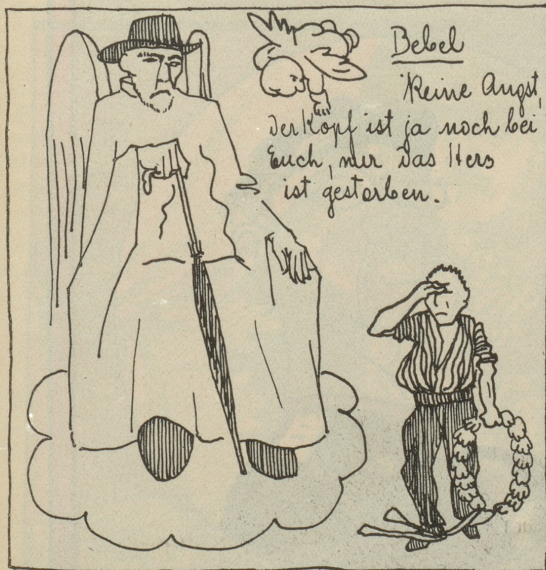 Bebel
Keine Angst,
Der Kopf ist ja noch bei
Euch, nur das Herz
ist gestorben.